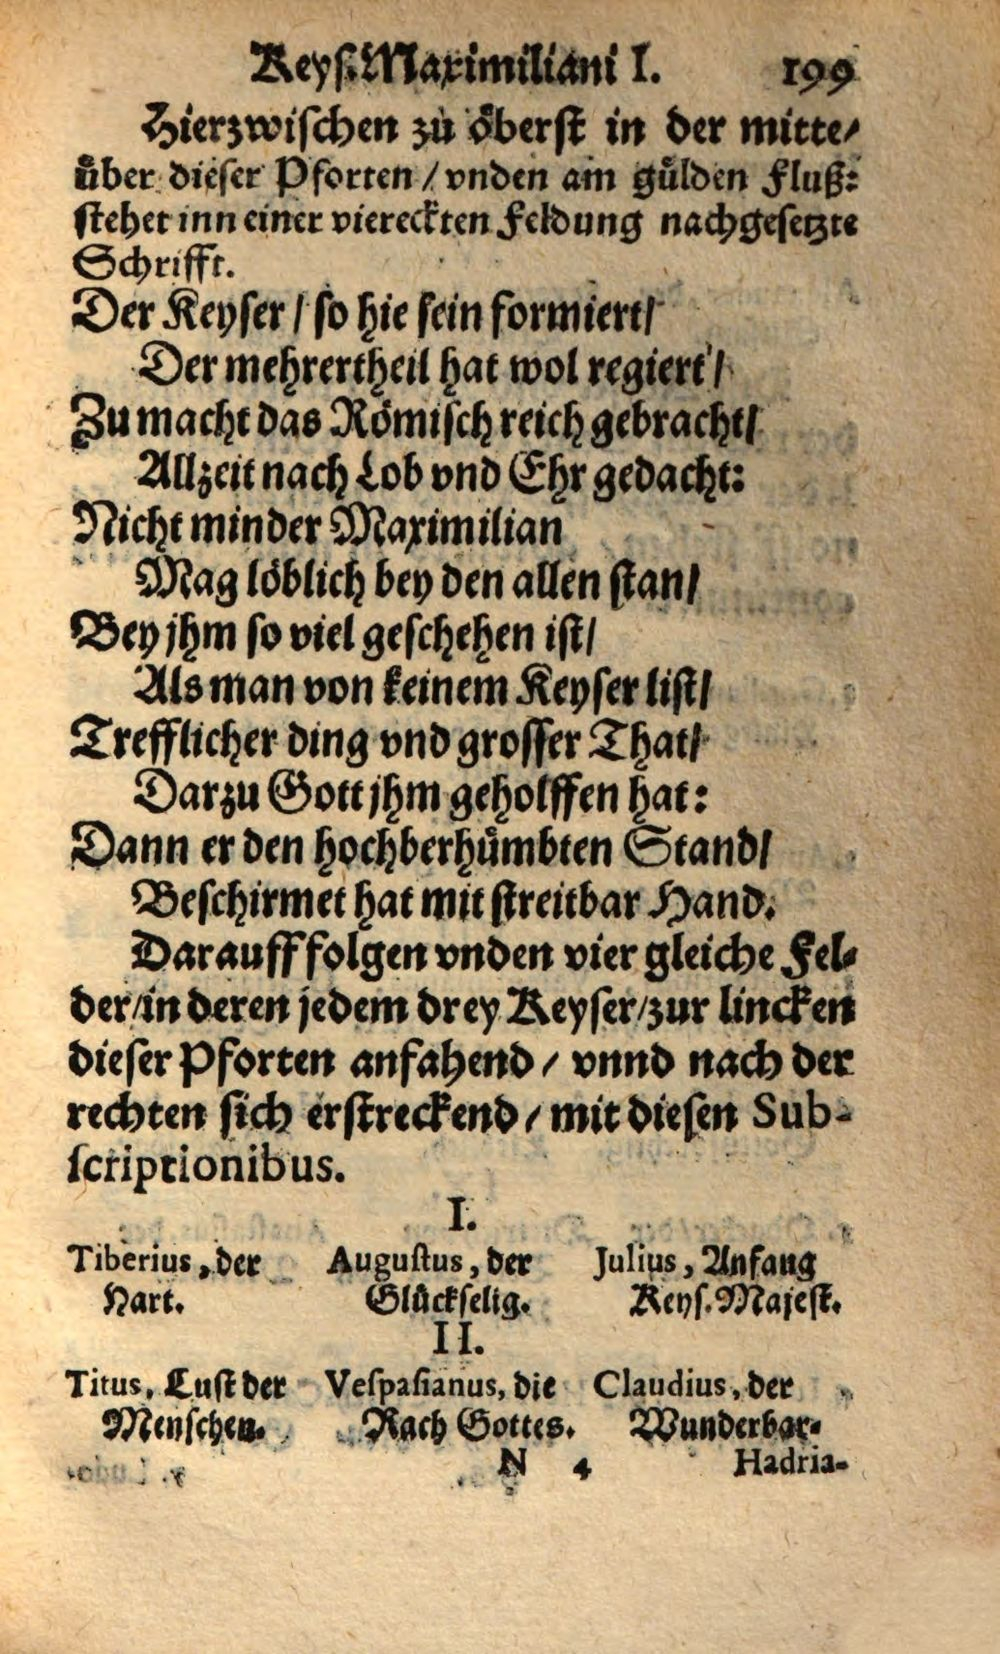 Keys. Maximiliani I. 199
Hierzwischen zů oͤberst in der mitte/
uͤber dieser Pforten / vnden am guͤlden Fluß:
stehet inn einer viereckten Feldung nachgesetzte
Schrifft.
Der Keyser / so hie sein formiert/
Der mehrertheil hat wol regiert/
Zu macht das Roͤmisch reich gebracht/
Allzeit nach Lob vnd Ehr gedacht:
Nicht minder Maximilian
Mag loͤblich bey den allen stan/
Bey jhm so viel geschehen ist/
Als man von keinem Keyser list/
Trefflicher ding vnd grosser That/
Darzu Gott jhm geholffen hat:
Dann er den hochberhuͤmbten Stand/
Beschirmet hat mit streitbar Hand.
Darauff folgen vnden vier gleiche Fel-
der/in deren jedem drey Keyser/zur lincken
dieser Pforten anfahend / vnnd nach der
rechten sich erstreckend / mit diesen Sub-
scriptionibus.
I.
Tiberius, der Augustus, der Julius, Anfang
Hart. Gluͤckselig. Keys. Majest.
II.
Titus, Lust der Vespasianus, die Claudius, der
Menschen. Rach Gottes. Wunderbar-
N 4 Hadria-